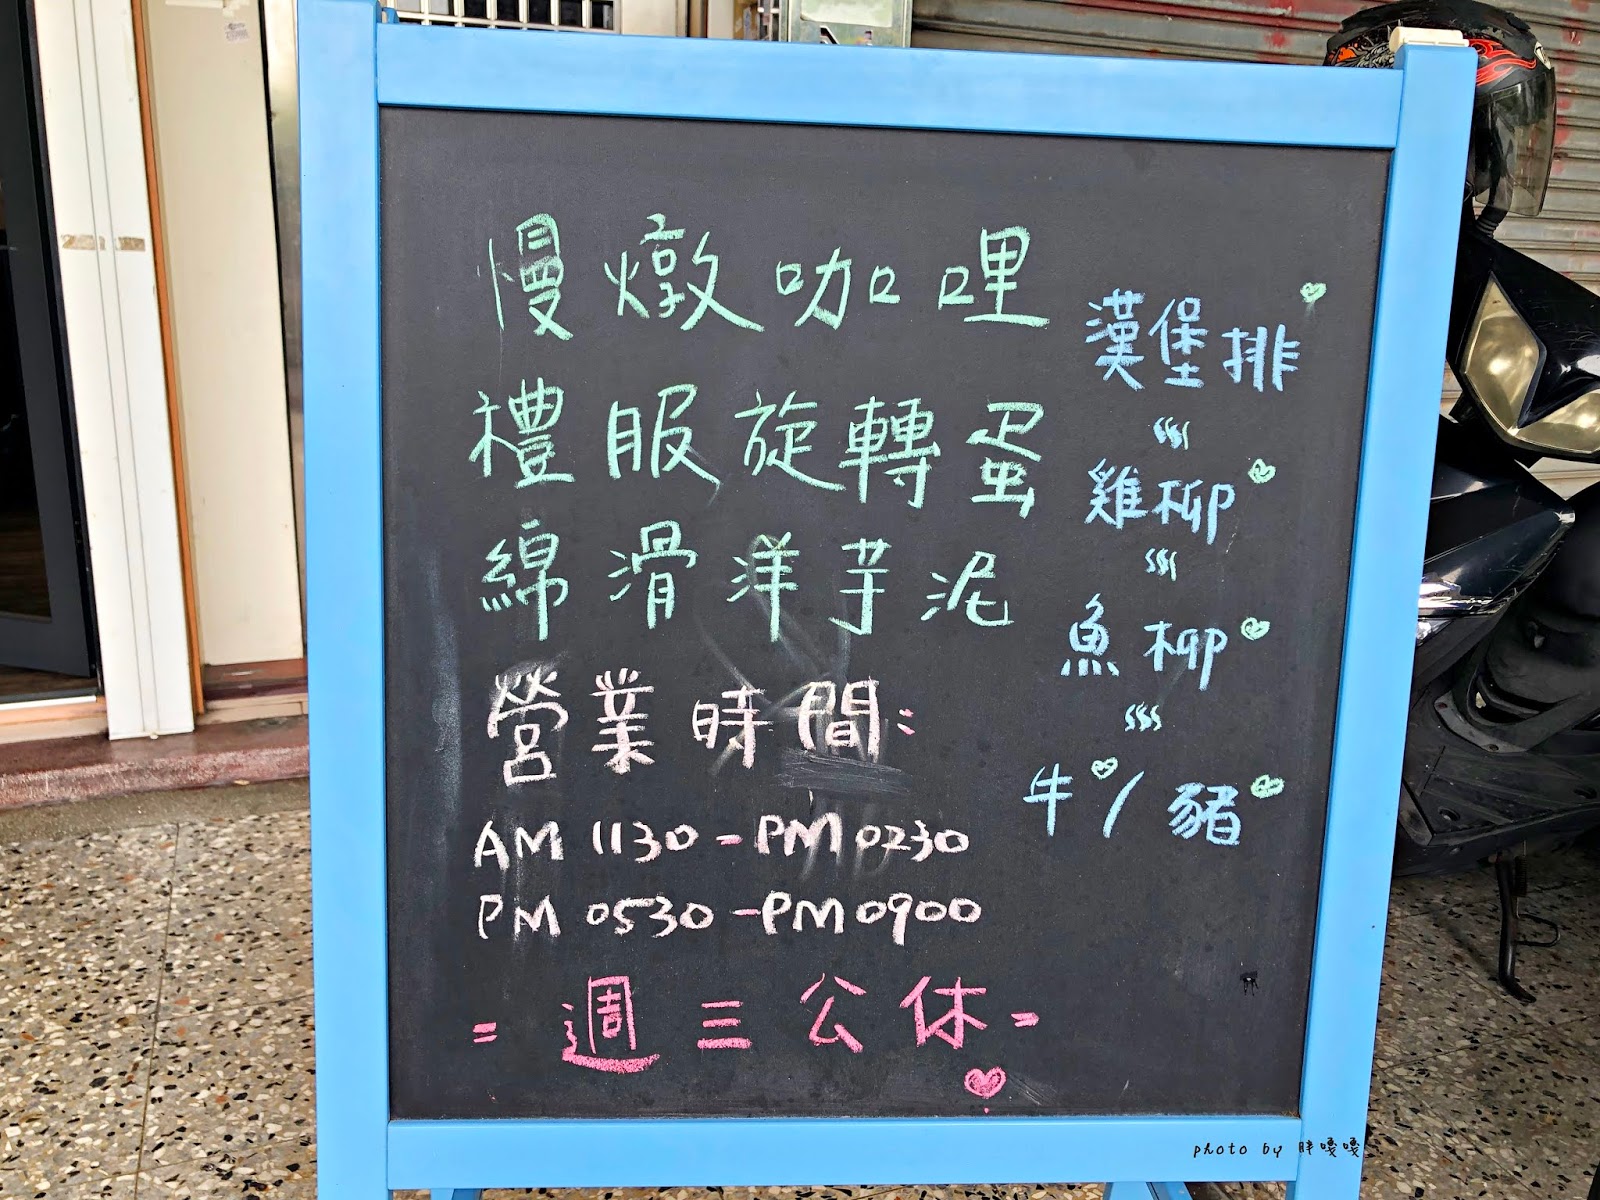 慢燉咖哩
禮服旋轉蛋
綿滑洋芋泥
營業時間:
AM 1130 - PM 0230
PM 0530 - PM 0900
= 週三公休 =
漢堡排
雞柳
魚柳
牛 / 豬
photo by 胖嘎嘎